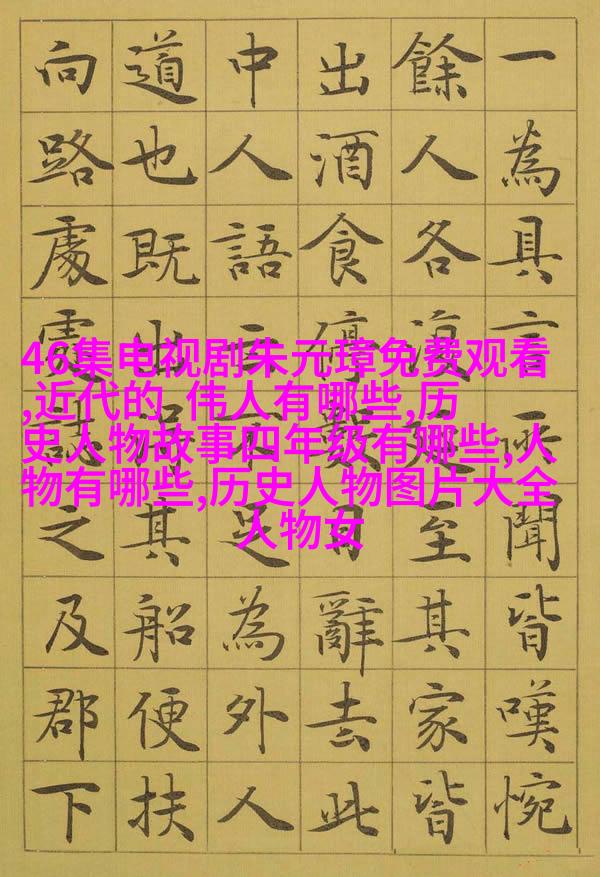 一為具言所聞皆嘆惋
餘人各復延至其家皆
出酒食停數日辭去此
中人語云不足為外人
道也既出得其船便扶
向路處處誌之及郡下
46集电视剧朱元璋免费观看
,近代的 伟人有哪些,历
史人物故事四年级有哪些,人
物有哪些,历史人物图片大全
人物女